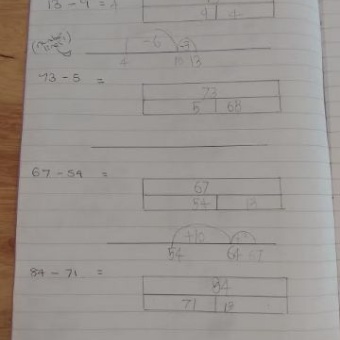 13 - 9 = 4
4 4
-6
4 10 13
73 - 5 =
73
5 68
67 - 54 =
67
54 13
+10
54 64 67
84 - 71 =
84
71 13